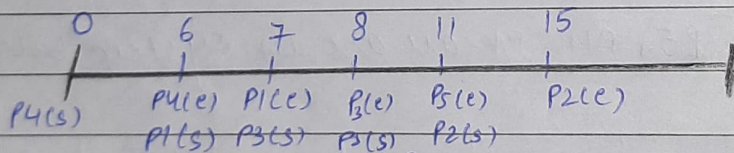 0 6 7 8 11 15
P4(s) P4(e) P1(e) P3(e) P5(e) P2(e)
P1(s) P3(s) P5(s) P2(s)